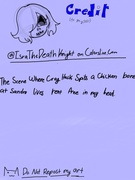 Credit
(to my gf)
@IsraTheDeathKnight on ColorsLive.Com
The Scene Where Greg Heck Spits a Chicken bone
at Sandra lives rent free in my head
Do Not Repost my art